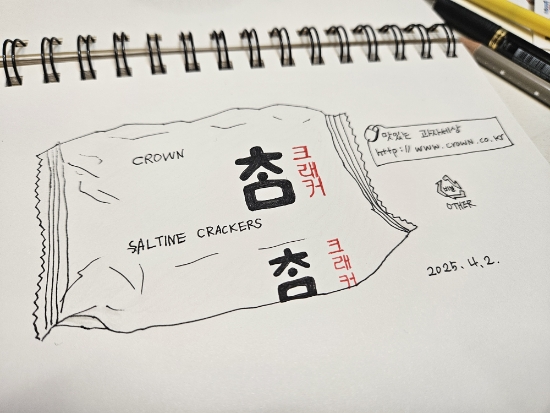 CROWN
참
크래커
SALTINE CRACKERS
참
크래커
맛있는 과자세상
http://www.crown.co.kr
비닐
OTHER
2025. 4. 2.